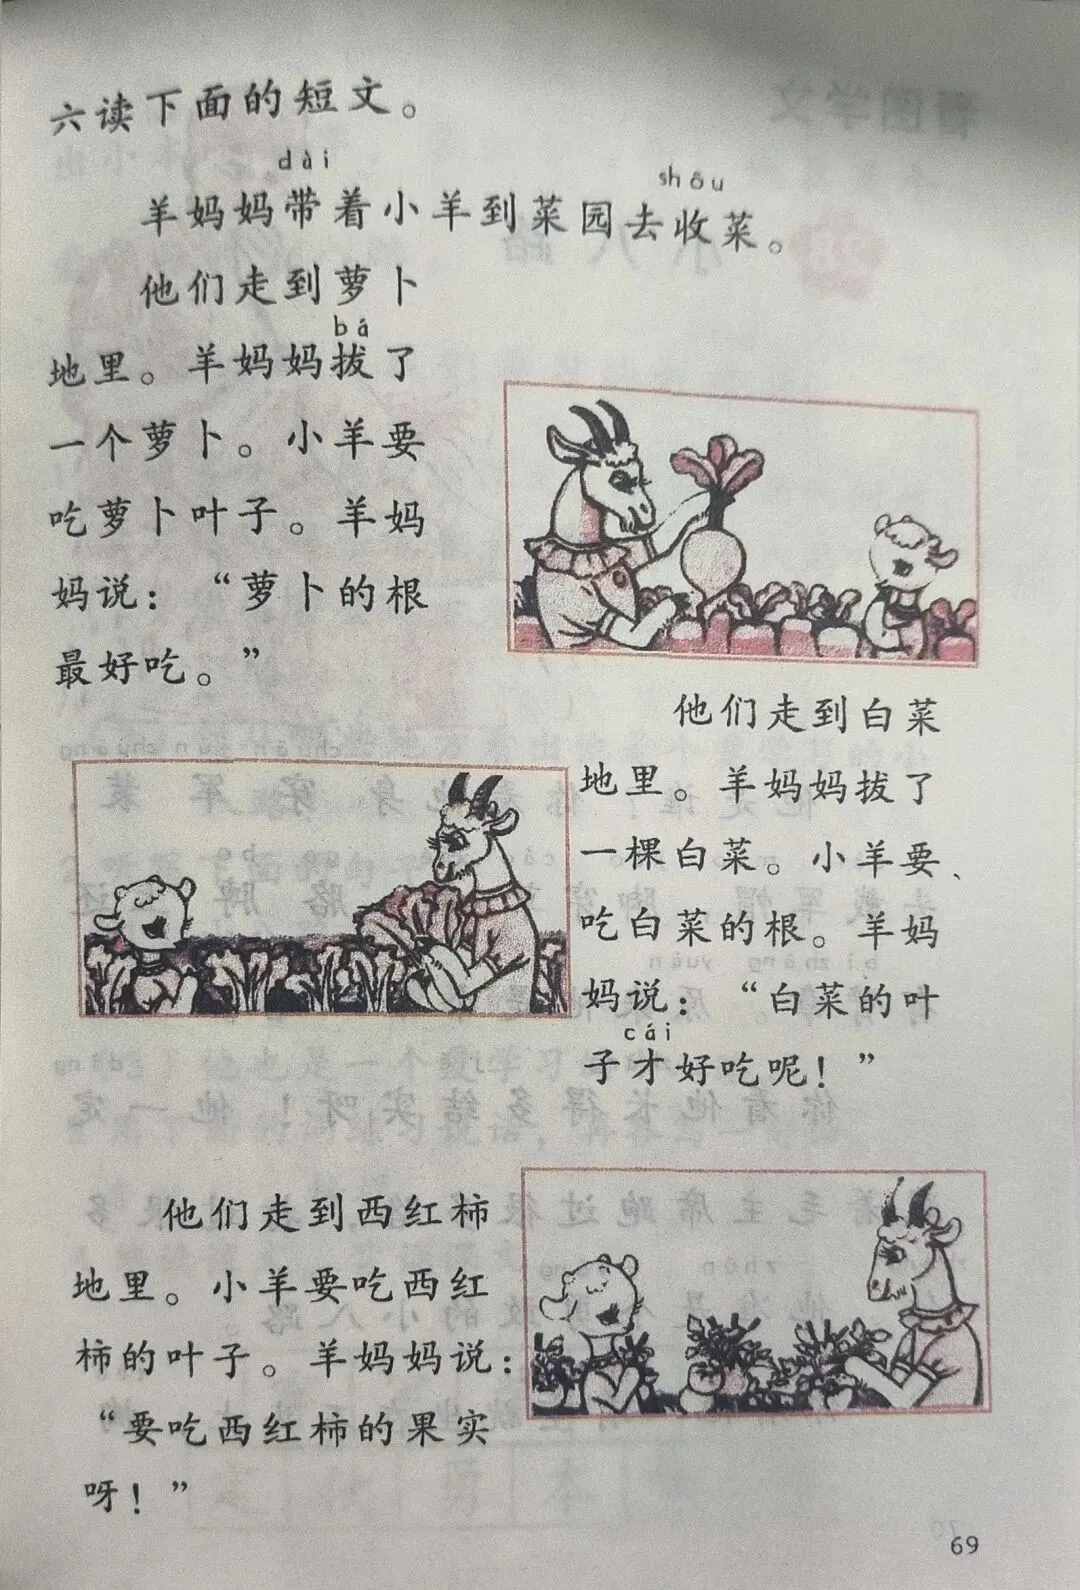 六读下面的短文。
dài shōu
羊妈妈带着小羊到菜园去收菜。
他们走到萝卜
bá
地里。羊妈妈拔了
一个萝卜。小羊要
吃萝卜叶子。羊妈
妈说：“萝卜的根
最好吃。”
他们走到白菜
地里。羊妈妈拔了
一棵白菜。小羊要
吃白菜的根。羊妈
妈说：“白菜的叶
cái
子才好吃呢！”
他们走到西红柿
地里。小羊要吃西红
柿的叶子。羊妈妈说：
“要吃西红柿的果实
呀！”
69